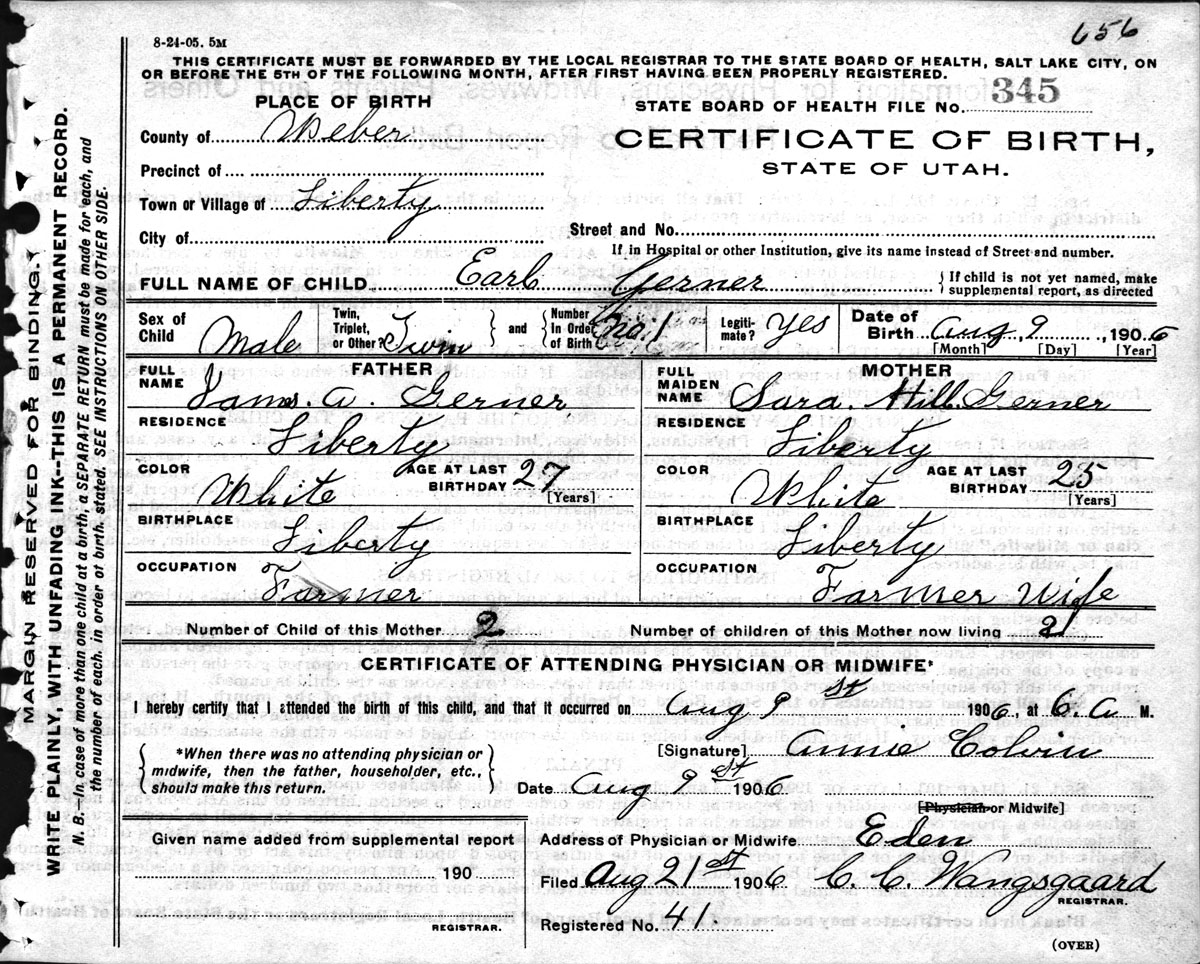 656
8-24-05. 5M
THIS CERTIFICATE MUST BE FORWARDED BY THE LOCAL REGISTRAR TO THE STATE BOARD OF HEALTH, SALT LAKE CITY, ON
OR BEFORE THE 5TH OF THE FOLLOWING MONTH, AFTER FIRST HAVING BEEN PROPERLY REGISTERED.
PLACE OF BIRTH
STATE BOARD OF HEALTH FILE No. 345
County of Weber
CERTIFICATE OF BIRTH,
STATE OF UTAH.
Precinct of
Town or Village of Liberty
City of
Street and No.
If in Hospital or other Institution, give its name instead of Street and number.
FULL NAME OF CHILD Earl Gerner { If child is not yet named, make
supplemental report, as directed
Sex of Child Male
Twin, Triplet, or Other? Twin } and { Number In Order of Birth No. 1
Legiti-mate? Yes
Date of Birth Aug, 9, 1906
[Month] [Day] [Year]
FATHER
MOTHER
FULL NAME A. Gerner
FULL MAIDEN NAME Sara. Hill. Gerner
RESIDENCE Liberty
RESIDENCE Liberty
COLOR White AGE AT LAST BIRTHDAY 27 [Years]
COLOR White AGE AT LAST BIRTHDAY 25 [Years]
BIRTHPLACE Liberty
BIRTHPLACE Liberty
OCCUPATION Farmer
OCCUPATION Farmer Wife
Number of Child of this Mother 2
Number of children of this Mother now living 2
CERTIFICATE OF ATTENDING PHYSICIAN OR MIDWIFE*
I hereby certify that I attended the birth of this child, and that it occurred on Aug 9 st 1906, at 6. a M.
{ *When there was no attending physician or
midwife, then the father, householder, etc.,
should make this return. }
[Signature] Annie Colvin
Date Aug 9 st 1906
[Physician or Midwife]
Given name added from supplemental report
190
REGISTRAR.
Address of Physician or Midwife Eden
Filed Aug 21st 1906 C. C. Wangsgaard
REGISTRAR.
Registered No. 41
(OVER)
MARGIN RESERVED FOR BINDING.
WRITE PLAINLY, WITH UNFADING INK--THIS IS A PERMANENT RECORD.
N. B.--In case of more than one child at a birth, a SEPARATE RETURN must be made for each, and
the number of each, in order of birth, stated. SEE INSTRUCTIONS ON OTHER SIDE.